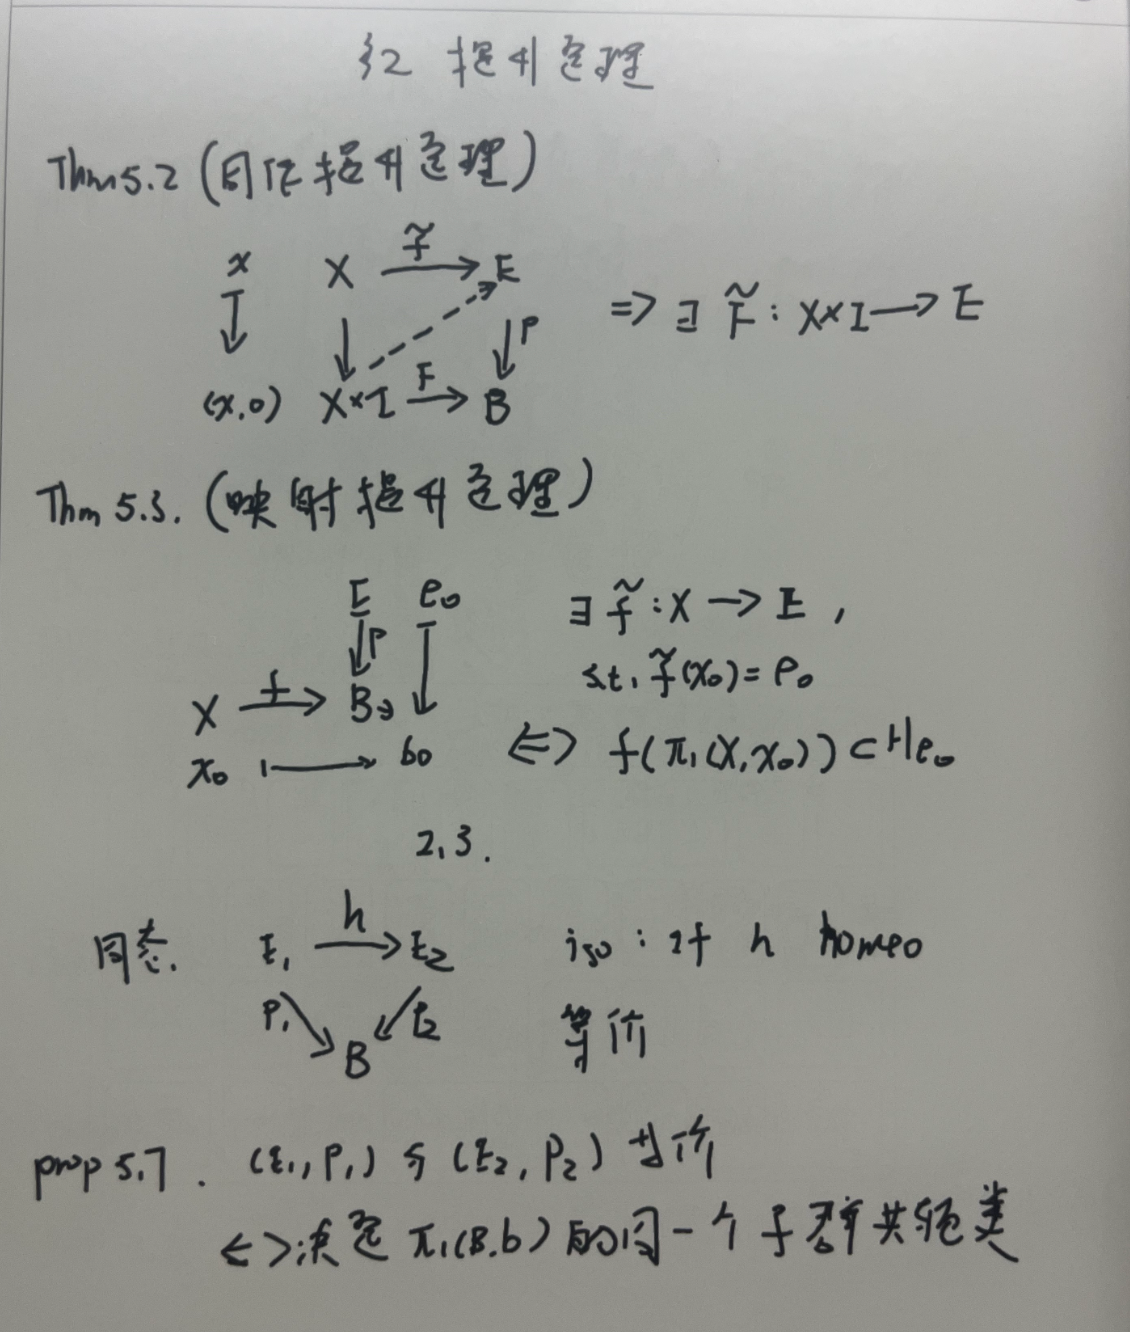 §2 提升定理
Thm 5.2 (同伦提升定理)
x X f̃ E
⇒ ∃ F̃ : X×I → E
p
(x,0) X×I F B
Thm 5.3. (映射提升定理)
E e₀ ∃ f̃ : X → E ,
p s.t. f̃(x₀) = e₀
X f B∋
x₀ b₀ ⇔ f(π₁(X,x₀)) ⊂ He₀
2,3.
h
同态. E₁ → E₂ iso : 若 h homeo
p₁ p₂ 等价
B
prop 5.7. (E₁,p₁) 与 (E₂,p₂) 等价
⇔ 决定 π₁(B,b) 的同一个子群共轭类